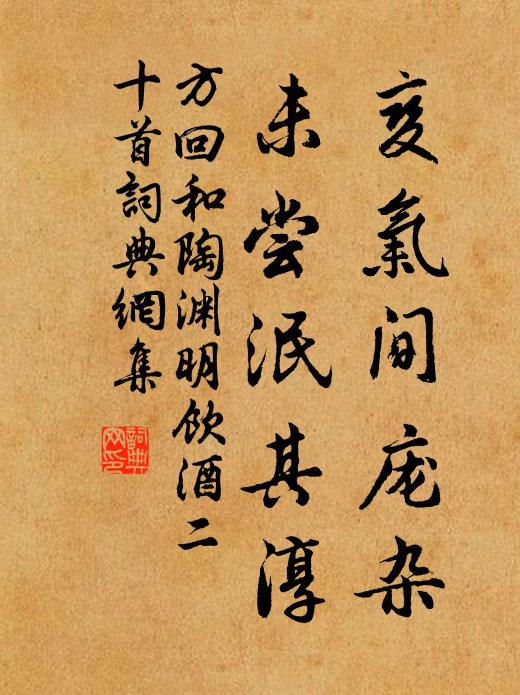 变氣间庞杂
未尝泯其淳
方回和陶渊明饮酒二
十首詞典網集
詞典网印